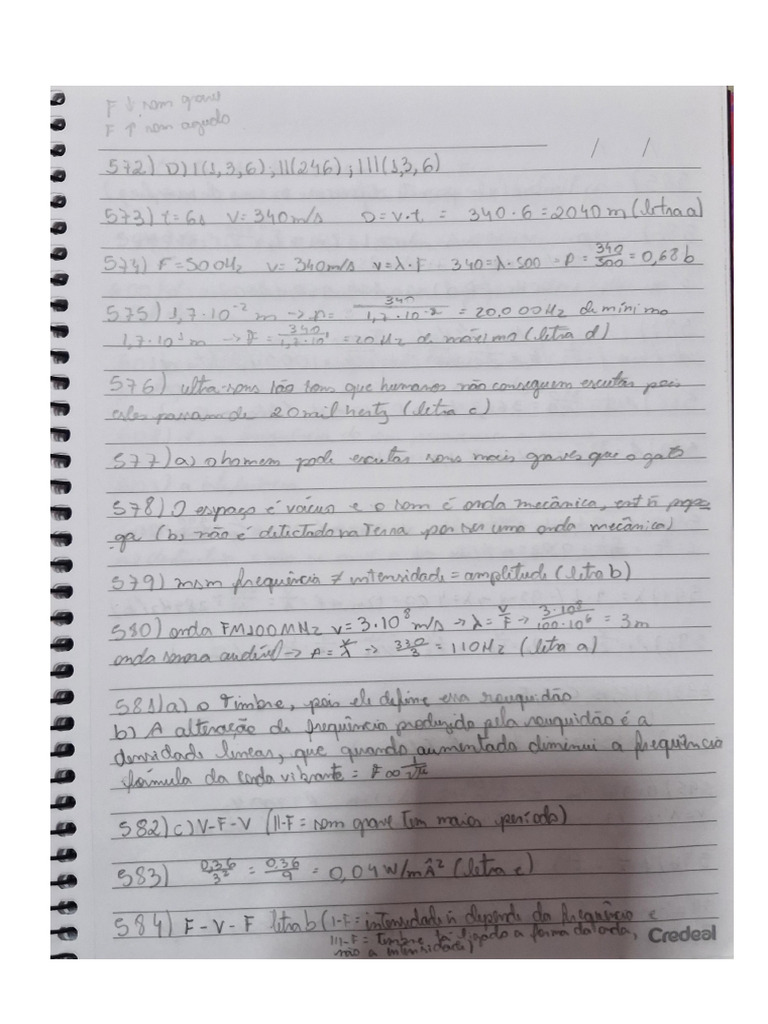 F ↓ som grave
F ↑ som agudo
/ /
572) D) I(1,3,6); II(246); III(1,3,6)
573) t=6s V=340m/s D=v.t = 340.6=2040m (letra a)
574) F=500Hz v=340m/s v=λ.F 340=λ.500 = P= 340/500 = 0,68 b
575) 1,7.10⁻² m → P= 340/1,7.10⁻² = 20.000Hz de mínimo
1,7.10¹m → F= 340/1,7.10¹ = 20Hz de máximo (letra d)
576) ultra-sons são sons que humanos não conseguem escutar pois
eles passam de 20 mil hertz (letra c)
577) a) o homem pode escutar sons mais graves que o gato
578) O espaço é vácuo e o som é onda mecânica, ent ñ propa-
ga (b, não é detectado na Terra por ser uma onda mecânica)
579) msm frequência ≠ intensidade = amplitude (letra b)
580) onda FM100MHz v=3.10⁸m/s → λ= v/F → 3.10⁸/100.10⁶ = 3m
onda sonora audível → P= v/λ → 330/3 = 110Hz (letra a)
581) a) o Timbre, pois ele define essa rouquidão
b) A alteração de frequência produzida pela rouquidão é a
densidade linear, que quando aumentada diminui a frequência
fórmula da corda vibrante = F∞ 1/√μ
582) c) V-F-V (II-F= som grave tem maior período)
583) 0,36/3² = 0,36/9 = 0,04 W/m² (letra c)
584) F-V-F letra b (I-F= intensidade ñ depende da frequência e
III-F= Timbre tá ligado a forma da onda,
não a intensidade)
Credeal